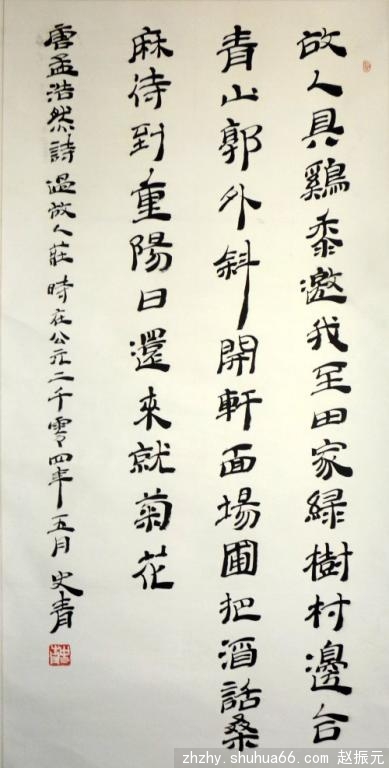 故人具鷄黍邀我至田家綠樹村邊合
青山郭外斜開軒面場圃把酒話桑
麻待到重陽日還來就菊花
唐孟浩然詩過故人莊時在公元二千零四年五月史青
zhzhy.shuhua66.com 赵振元